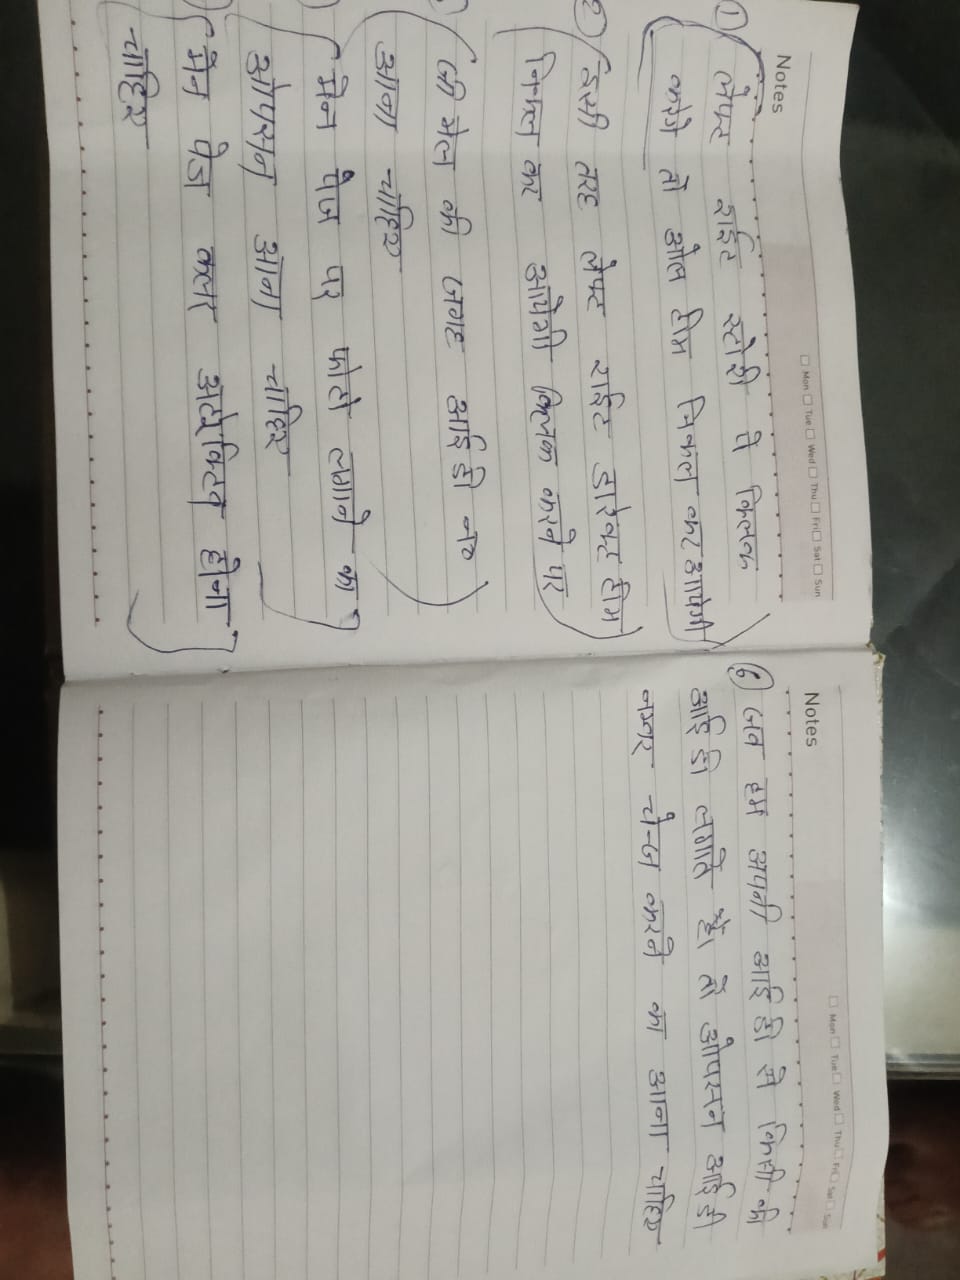 Notes
□ Mon □ Tue □ Wed □ Thu □ Fri □ Sat □ Sun
① लेफ्ट राईट स्टोरी पे क्लिक
करेगे तो ओल टीम निकल कर आयेगी
② इसी तरह लेफ्ट राईट डारेक्ट टीम
निकल कर आयेगी क्लिक करने पर
जी मेल की जगह आई डी न०
आना चाहिए
मेन पेज पर फोटो लगाने का
ओपसन आना चाहिए
मेन पेज कलर अटरेक्टिव होना
चाहिए
Notes
□ Mon □ Tue □ Wed □ Thu □ Fri □ Sat □ Sun
⑥ जब हम अपनी आई डी से किसी की
आई डी लगाते है। तो ओपसन आई डी
नम्बर चेन्ज करने का आना चाहिए